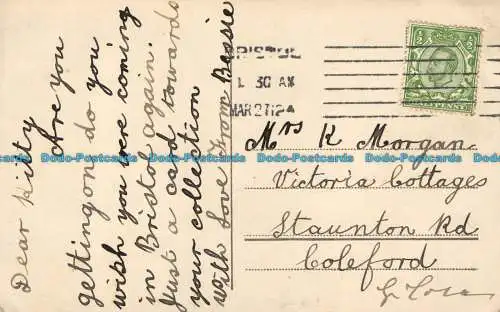 Dear Kitty
Are you
getting on do you
wish you were coming
in Bristol again.
Just a card towards
your collection
With Love from Bessie
BRISTOL
1. 30 AM
MAR 27 12
Mrs K Morgan.
Victoria Cottages
Staunton Rd
Coleford
Glos
Dodo-Postcards.com Dodo-Postcards.com Dodo-Postcards.com Dodo-Postcards.com
Dodo-Postcards.com Dodo-Postcards.com Dodo-Postcards.com Dodo-Postcards.com